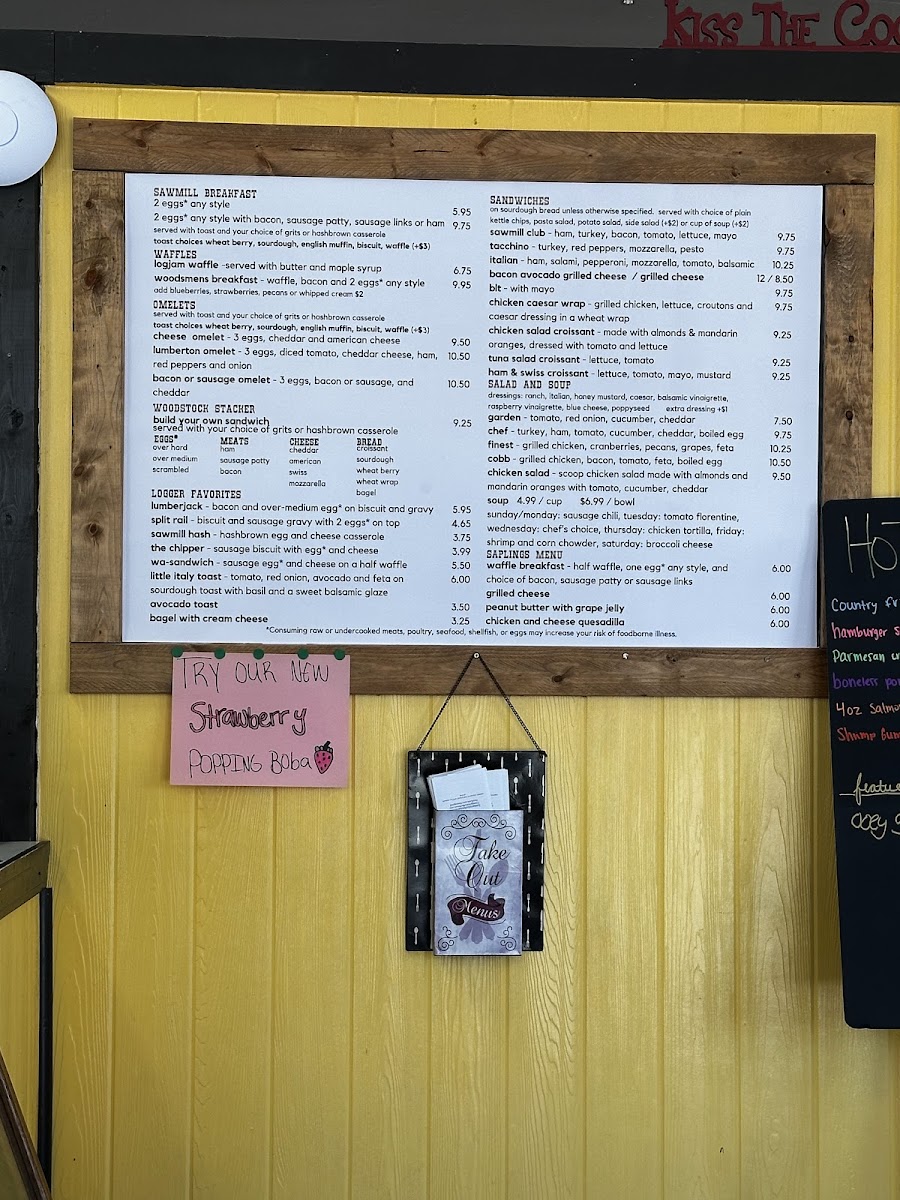 KISS THE
SAWMILL BREAKFAST
2 eggs* any style 5.95
2 eggs* any style with bacon, sausage patty, sausage links or ham 9.75
served with toast and your choice of grits or hashbrown casserole
toast choices wheat berry, sourdough, english muffin, biscuit, waffle (+$3)
WAFFLES
logjam waffle -served with butter and maple syrup 6.75
woodsmens breakfast - waffle, bacon and 2 eggs* any style 9.95
add blueberries, strawberries, pecans or whipped cream $2
OMELETS
served with toast and your choice of grits or hashbrown casserole
toast choices wheat berry, sourdough, english muffin, biscuit, waffle (+$3)
cheese omelet - 3 eggs, cheddar and american cheese 9.50
lumberton omelet - 3 eggs, diced tomato, cheddar cheese, ham, 10.50
red peppers and onion
bacon or sausage omelet - 3 eggs, bacon or sausage, and 10.50
cheddar
WOODSTOCK STACKER
build your own sandwich 9.25
served with your choice of grits or hashbrown casserole
EGGS* MEATS CHEESE BREAD
over hard ham cheddar croissant
over medium sausage patty american sourdough
scrambled bacon swiss wheat berry
mozzarella wheat wrap
bagel
LOGGER FAVORITES
lumberjack - bacon and over-medium egg* on biscuit and gravy 5.95
split rail - biscuit and sausage gravy with 2 eggs* on top 4.65
sawmill hash - hashbrown egg and cheese casserole 3.75
the chipper - sausage biscuit with egg* and cheese 3.99
wa-sandwich - sausage egg* and cheese on a half waffle 5.50
little italy toast - tomato, red onion, avocado and feta on 6.00
sourdough toast with basil and a sweet balsamic glaze
avocado toast 3.50
bagel with cream cheese 3.25
SANDWICHES
on sourdough bread unless otherwise specified. served with choice of plain
kettle chips, pasta salad, potato salad, side salad (+$2) or cup of soup (+$2)
sawmill club - ham, turkey, bacon, tomato, lettuce, mayo 9.75
tacchino - turkey, red peppers, mozzarella, pesto 9.75
italian - ham, salami, pepperoni, mozzarella, tomato, balsamic 10.25
bacon avocado grilled cheese / grilled cheese 12 / 8.50
blt - with mayo 9.75
chicken caesar wrap - grilled chicken, lettuce, croutons and 9.75
caesar dressing in a wheat wrap
chicken salad croissant - made with almonds & mandarin 9.25
oranges, dressed with tomato and lettuce
tuna salad croissant - lettuce, tomato 9.25
ham & swiss croissant - lettuce, tomato, mayo, mustard 9.25
SALAD AND SOUP
dressings: ranch, italian, honey mustard, caesar, balsamic vinaigrette,
raspberry vinaigrette, blue cheese, poppyseed extra dressing +$1
garden - tomato, red onion, cucumber, cheddar 7.50
chef - turkey, ham, tomato, cucumber, cheddar, boiled egg 9.75
finest - grilled chicken, cranberries, pecans, grapes, feta 10.25
cobb - grilled chicken, bacon, tomato, feta, boiled egg 10.50
chicken salad - scoop chicken salad made with almonds and 9.50
mandarin oranges with tomato, cucumber, cheddar
soup 4.99 / cup $6.99 / bowl
sunday/monday: sausage chili, tuesday: tomato florentine,
wednesday: chef's choice, thursday: chicken tortilla, friday:
shrimp and corn chowder, saturday: broccoli cheese
SAPLINGS MENU
waffle breakfast - half waffle, one egg* any style, and 6.00
choice of bacon, sausage patty or sausage links
grilled cheese 6.00
peanut butter with grape jelly 6.00
chicken and cheese quesadilla 6.00
*Consuming raw or undercooked meats, poultry, seafood, shellfish, or eggs may increase your risk of foodborne illness.
TRY OUR NEW
Strawberry
POPPING Boba
Take
Out
Menus
Country
hamburger
Parmesan
boneless
4oz Salmon
Shrimp